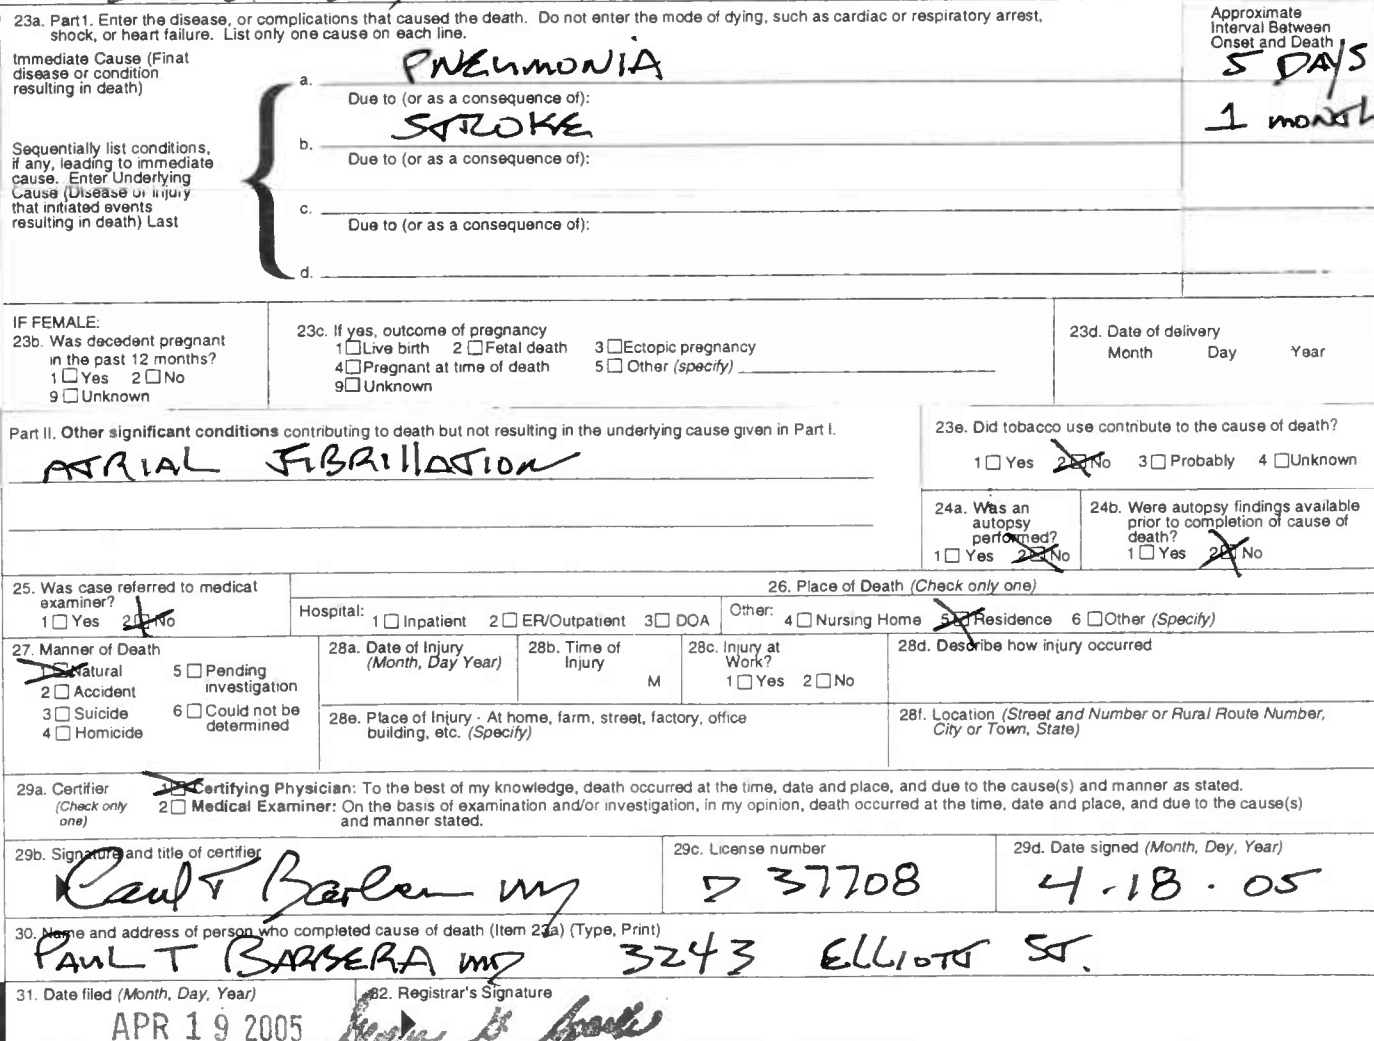 23a. Part1. Enter the disease, or complications that caused the death. Do not enter the mode of dying, such as cardiac or respiratory arrest,
shock, or heart failure. List only one cause on each line.
Approximate
Interval Between
Onset and Death
Immediate Cause (Final
disease or condition
resulting in death)
a. PNEUMONIA 5 DAYS
Due to (or as a consequence of):
Sequentially list conditions,
if any, leading to immediate
cause. Enter Underlying
Cause (Disease or injury
that initiated events
resulting in death) Last
b. STROKE 1 MONTH
Due to (or as a consequence of):
c.
Due to (or as a consequence of):
d.
IF FEMALE:
23b. Was decedent pregnant
in the past 12 months?
1 ☐ Yes 2 ☐ No
9 ☐ Unknown
23c. If yes, outcome of pregnancy
1 ☐ Live birth 2 ☐ Fetal death 3 ☐ Ectopic pregnancy
4 ☐ Pregnant at time of death 5 ☐ Other (specify)
9 ☐ Unknown
23d. Date of delivery
Month Day Year
Part II. Other significant conditions contributing to death but not resulting in the underlying cause given in Part I.
ATRIAL FIBRILLATION
23e. Did tobacco use contribute to the cause of death?
1 ☐ Yes 2 ☒ No 3 ☐ Probably 4 ☐ Unknown
24a. Was an
autopsy
performed?
1 ☐ Yes 2 ☒ No
24b. Were autopsy findings available
prior to completion of cause of
death?
1 ☐ Yes 2 ☒ No
25. Was case referred to medical
examiner?
1 ☐ Yes 2 ☒ No
26. Place of Death (Check only one)
Hospital: 1 ☐ Inpatient 2 ☐ ER/Outpatient 3 ☐ DOA Other: 4 ☐ Nursing Home 5 ☒ Residence 6 ☐ Other (Specify)
27. Manner of Death
1 ☒ Natural 5 ☐ Pending
investigation
2 ☐ Accident
3 ☐ Suicide 6 ☐ Could not be
determined
4 ☐ Homicide
28a. Date of Injury
(Month, Day Year)
28b. Time of
Injury
M
28c. Injury at
Work?
1 ☐ Yes 2 ☐ No
28d. Describe how injury occurred
28e. Place of Injury - At home, farm, street, factory, office
building, etc. (Specify)
28f. Location (Street and Number or Rural Route Number,
City or Town, State)
29a. Certifier
(Check only
one)
1 ☒ Certifying Physician: To the best of my knowledge, death occurred at the time, date and place, and due to the cause(s) and manner as stated.
2 ☐ Medical Examiner: On the basis of examination and/or investigation, in my opinion, death occurred at the time, date and place, and due to the cause(s)
and manner stated.
29b. Signature and title of certifier
Paul T Barbera MD
29c. License number
D 37708
29d. Date signed (Month, Day, Year)
4-18-05
30. Name and address of person who completed cause of death (Item 23a) (Type, Print)
PAUL T BARBERA MD 3243 ELLIOTT ST.
31. Date filed (Month, Day, Year)
APR 19 2005
32. Registrar's Signature